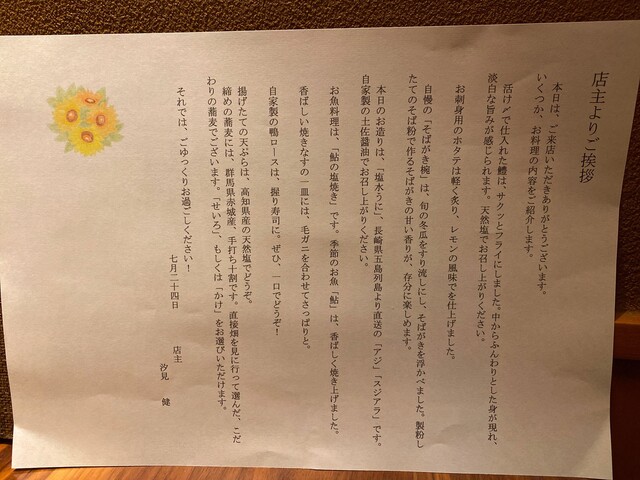 店主よりご挨拶
本日は、ご来店いただきありがとうございます。
いくつか、お料理の内容をご紹介します。
活け〆で仕入れた鱧は、サクッとフライにしました。中からふんわりとした身が現れ、
淡白な旨みが感じられます。天然塩でお召し上がりください。
お刺身用のホタテは軽く炙り、レモンの風味でを仕上げました。
自慢の「そばがき椀」は、旬の冬瓜をすり流しにし、そばがきを浮かべました。製粉し
たてのそば粉で作るそばがきの甘い香りが、存分に楽しめます。
本日のお造りは、「塩水うに」、長崎県五島列島より直送の「アジ」「スジアラ」です。
自家製の土佐醤油でお召し上がりください。
お魚料理は、「鮎の塩焼き」です。季節のお魚「鮎」は、香ばしく焼き上げました。
香ばしい焼きなすの一皿には、毛ガニを合わせてさっぱりと。
自家製の鴨ロースは、握り寿司に。ぜひ、一口でどうぞ！
揚げたての天ぷらは、高知県産の天然塩でどうぞ。
締めの蕎麦には、群馬県赤城産、手打ち十割です。直接畑を見に行って選んだ、こだ
わりの蕎麦でございます。「せいろ」、もしくは「かけ」をお選びいただけます。
それでは、ごゆっくりお過ごしください！
七月二十四日
店主
汐見　健